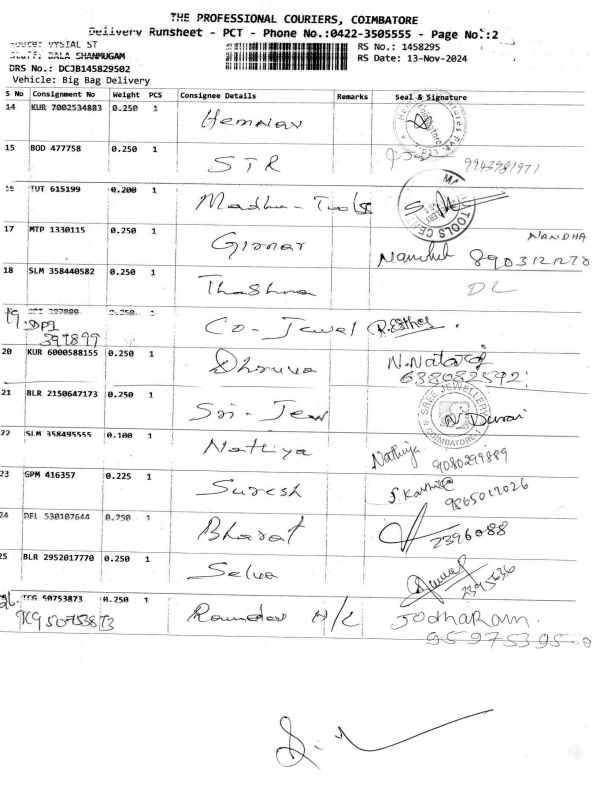 THE PROFESSIONAL COURIERS, COIMBATORE
Delivery Runsheet - PCT - Phone No.:0422-3505555 - Page No.:2
VYSIAL ST
BALA SHANMUGAM
RS No.: 1458295
DRS No.: DCJB145829502
RS Date: 13-Nov-2024
Vehicle: Big Bag Delivery
S No Consignment No Weight PCS Consignee Details Remarks Seal & Signature
14 KUR 7002534883 0.250 1
15 BOD 477758 0.250 1 STR 9942981971
16 TUT 615199 0.200 1 Madhu-Tools
17 MTP 1330115 0.250 1 Girnar NANDHA
8903121278
18 SLM 358440582 0.250 1 DL
19 DPI 397899 0.250 1 Co-Jewel R.Esther
DPI
397899
20 KUR 6000588155 0.250 1 Dhruva N.Nataraj
638082592
21 BLR 2150647173 0.250 1 Sri-Jew SREE JEWELLERY COIMBATORE N. Durai
22 SLM 358495555 0.100 1 Nathiya Nathiya
9080299889
23 GPM 416357 0.225 1 Suresh
9865017026
24 DEL 530107644 0.250 1 Bharat 2396088
25 BLR 2952017770 0.250 1 Selva 2395636
26 50753873 0.250 1 Ramdev H/L JODHARAM.
95975395